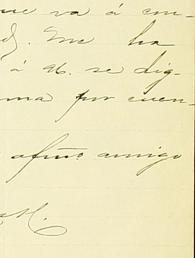 me va á em-
d. Me ha
á U. se dig-
ma por cuen-
afmo amigo
M.